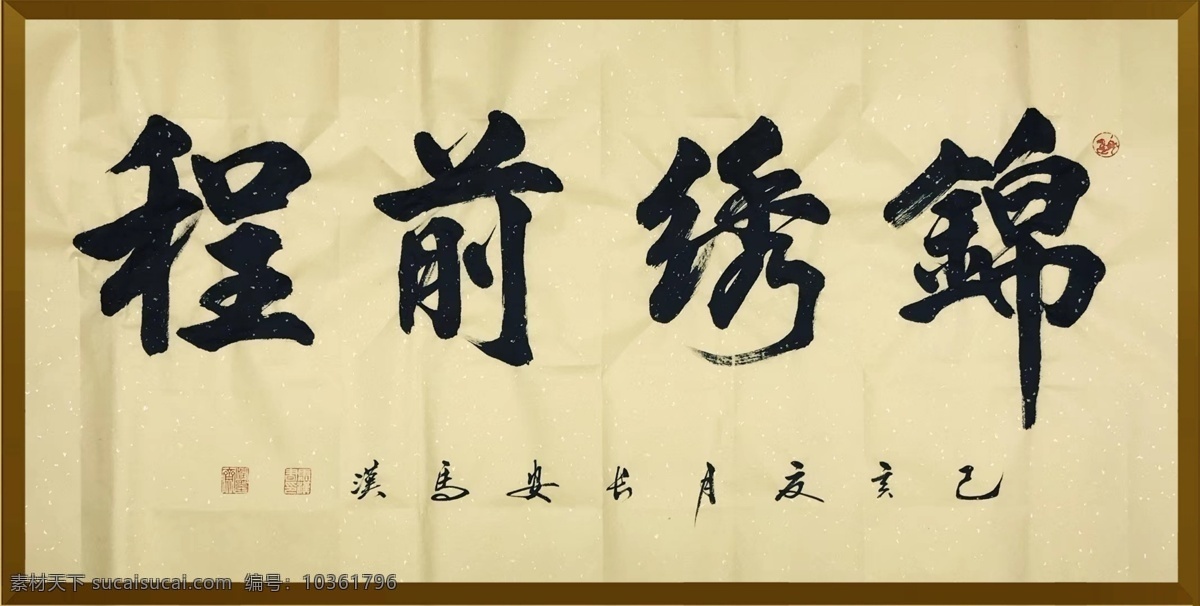 錦绣前程
己亥夏月长安马漢
素材天下 sucaisucai.com 编号：10361796